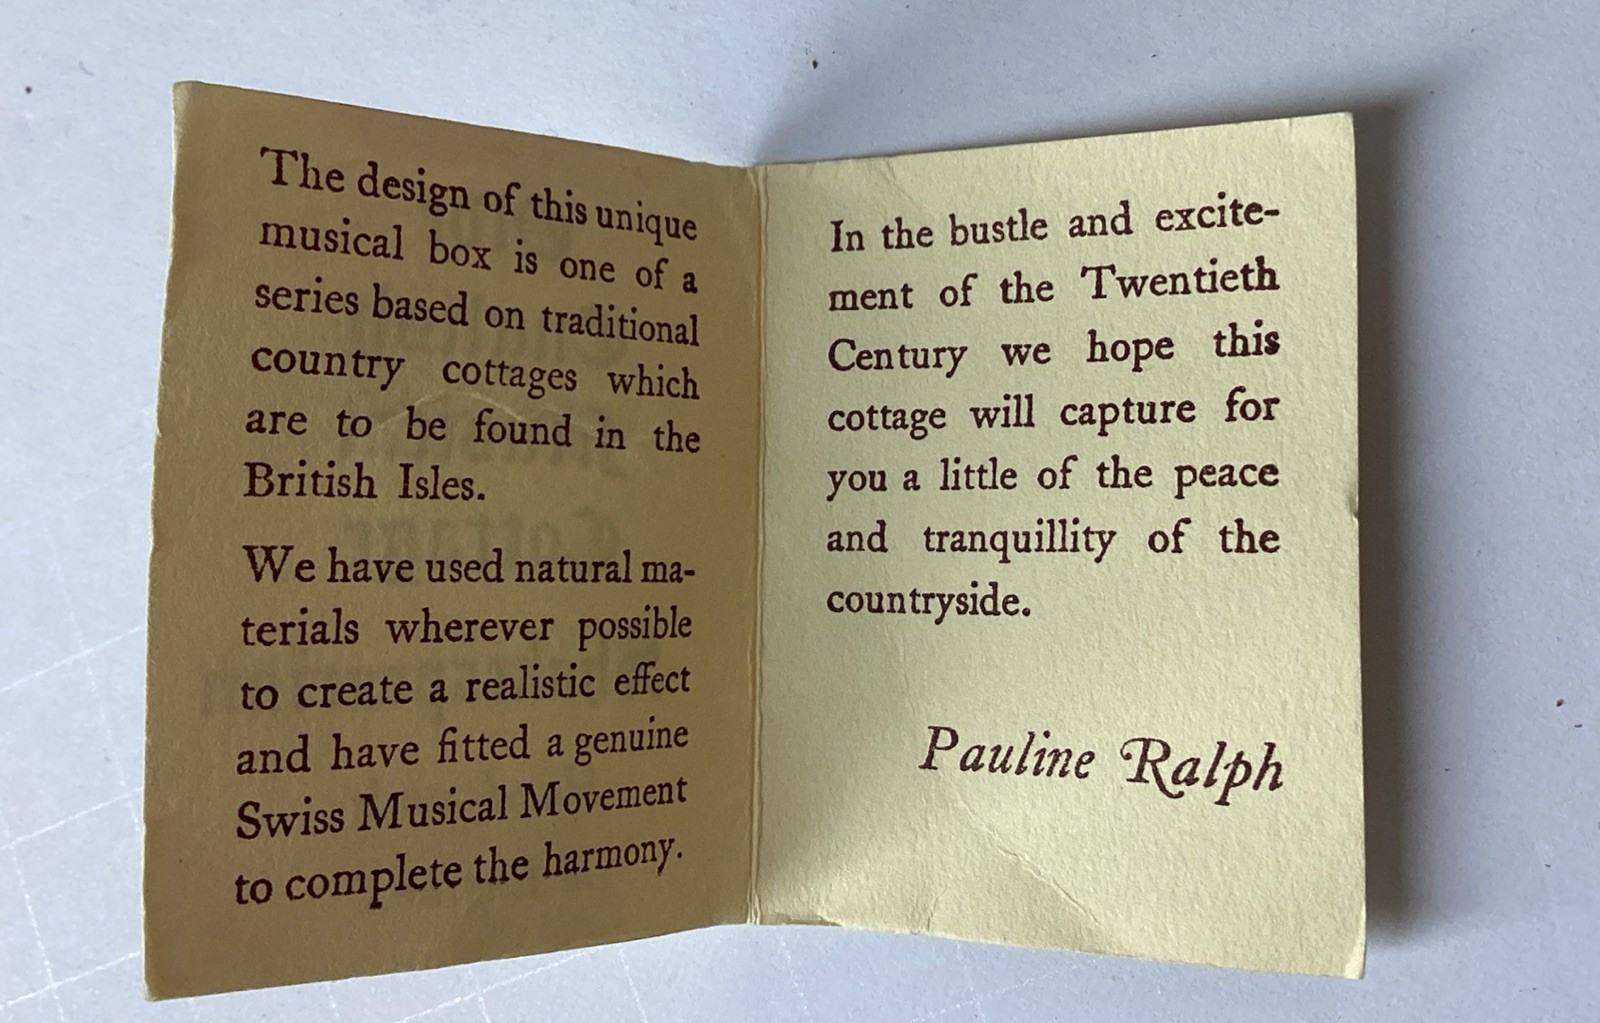 The design of this unique
musical box is one of a
series based on traditional
country cottages which
are to be found in the
British Isles.
We have used natural ma-
terials wherever possible
to create a realistic effect
and have fitted a genuine
Swiss Musical Movement
to complete the harmony.
In the bustle and excite-
ment of the Twentieth
Century we hope this
cottage will capture for
you a little of the peace
and tranquillity of the
countryside.
Pauline Ralph